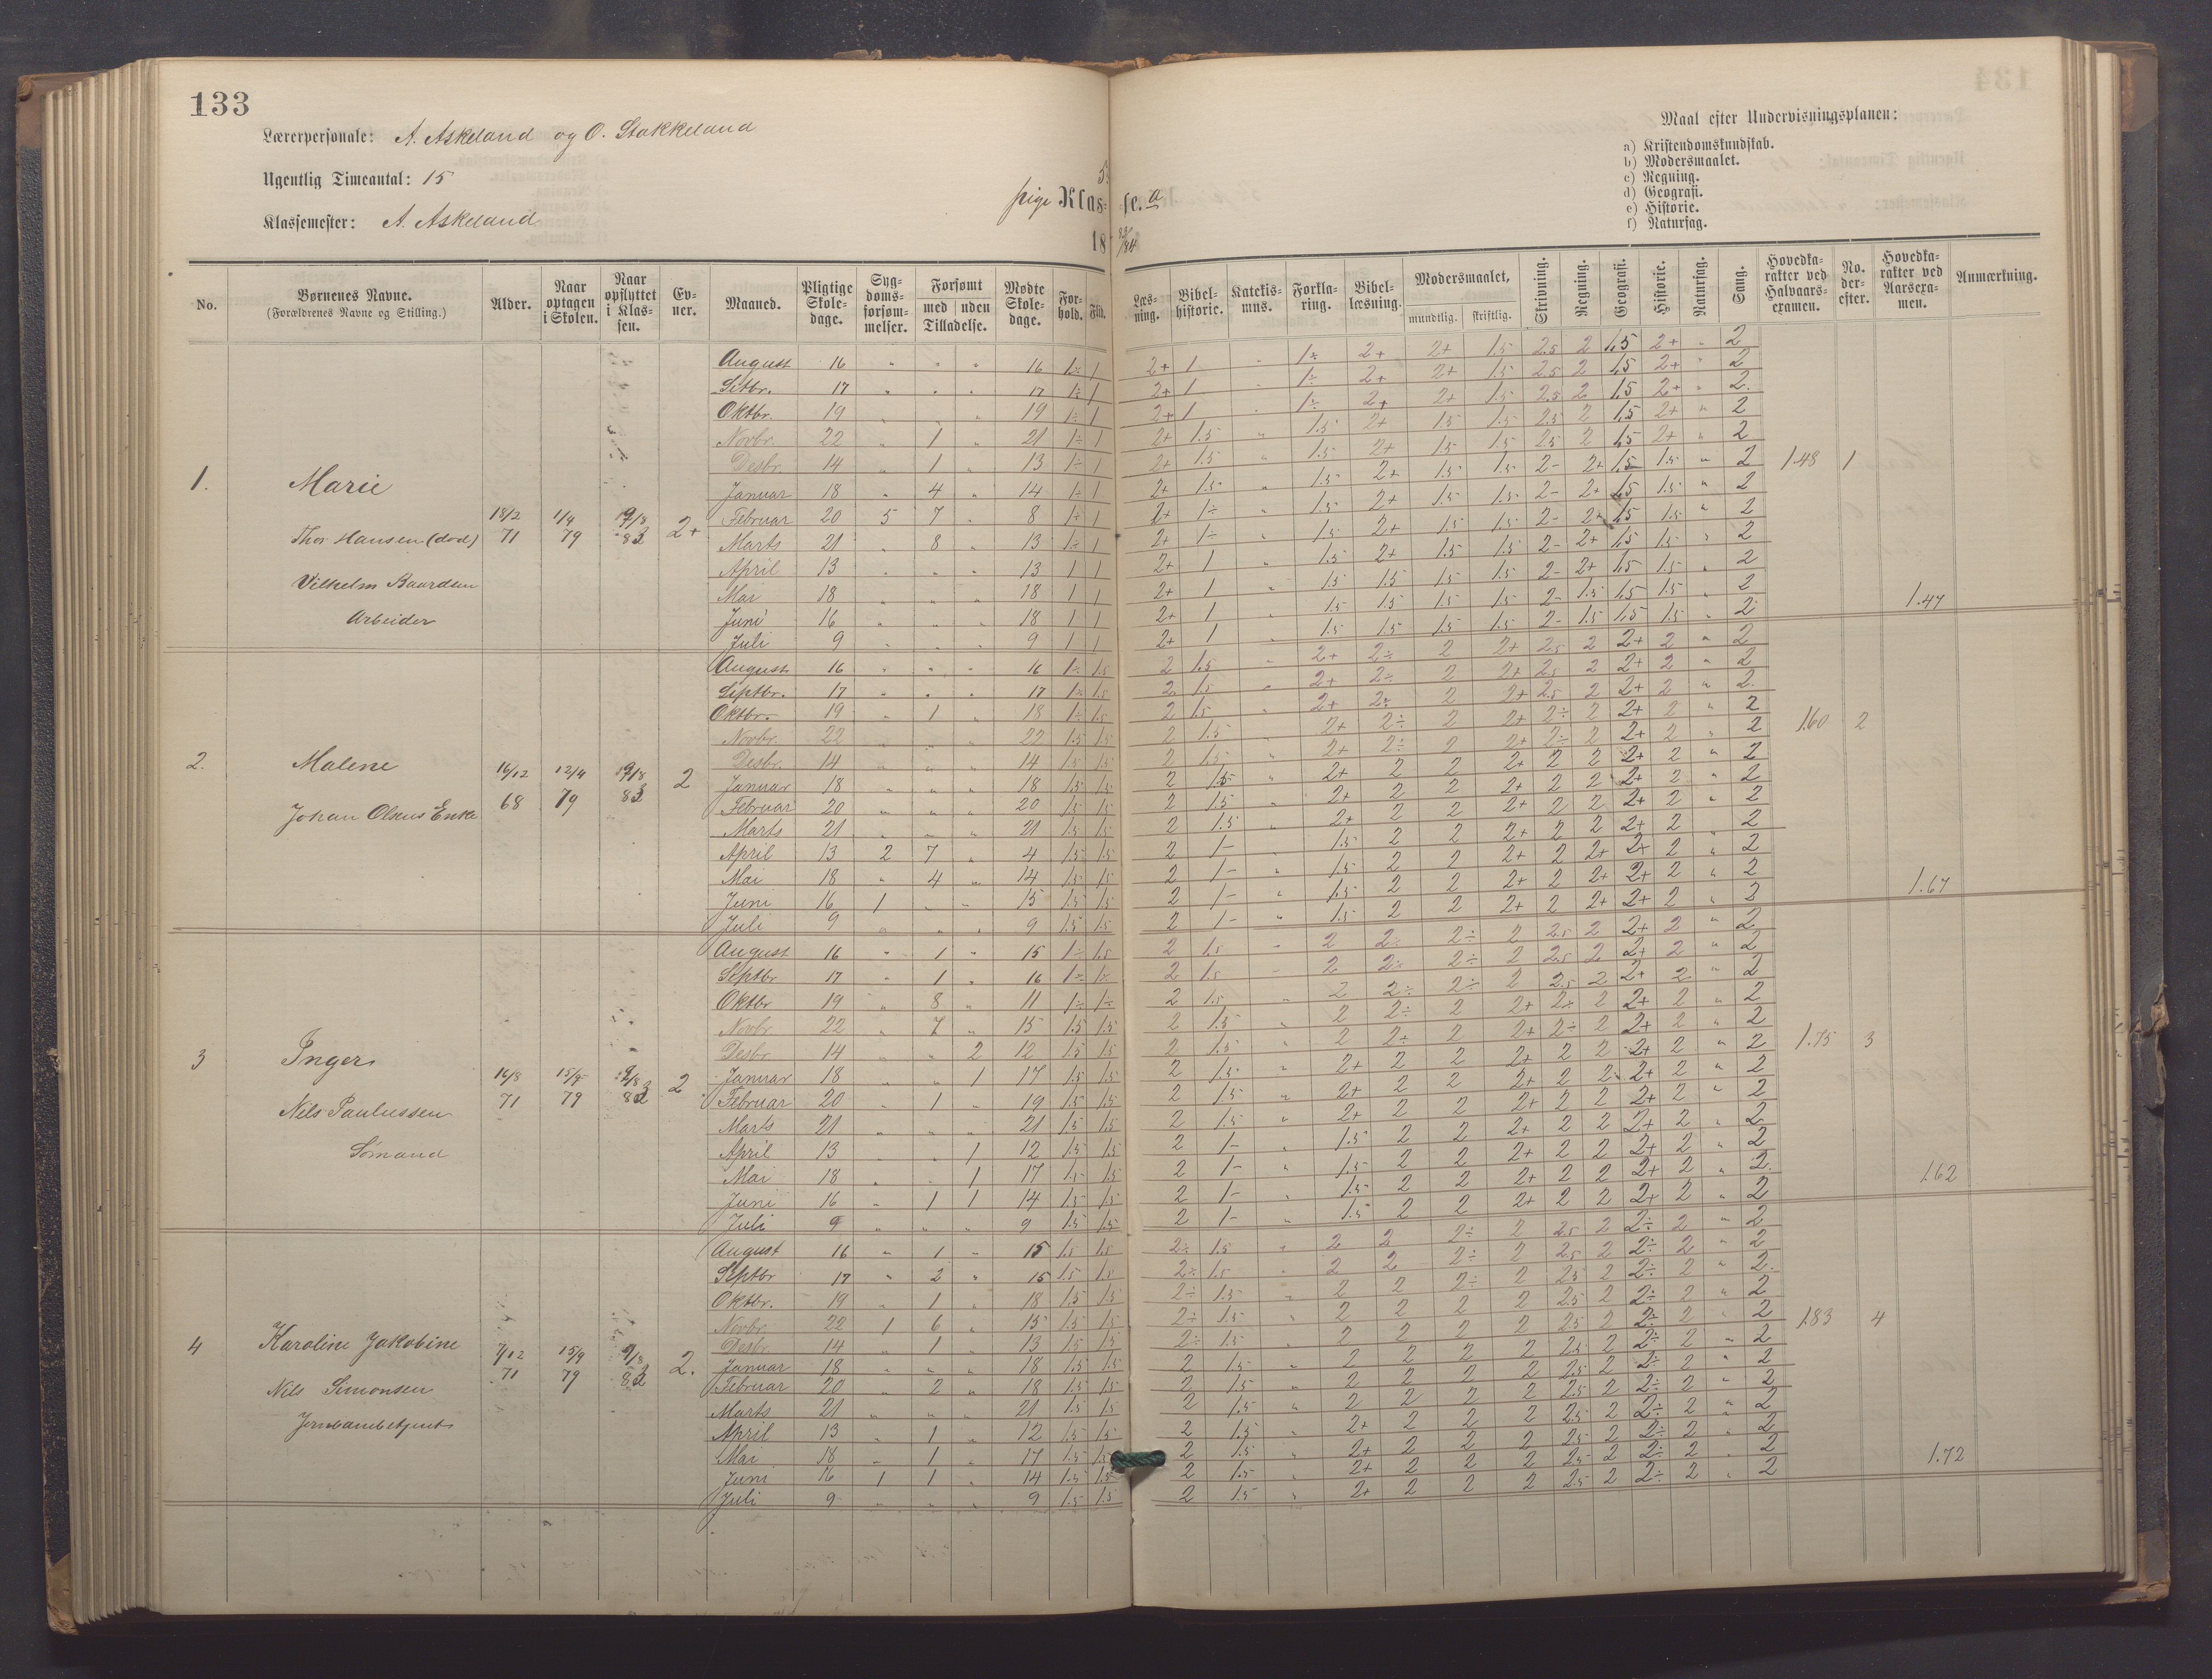 133
Lærerpersonale: A. Askeland og O. Stokkeland
Ugentlig Timeantal: 15
Klassemester: A. Askeland
5.
pige Klas- se. a
18 83/84
Maal efter Undervisningsplanen:
a) Kristendomskundskab.
b) Modersmaalet.
c) Regning.
d) Geografi.
e) Historie.
f) Naturfag.
No. | Børnenes Navne. (Forældrenes Navne og Stilling.) | Alder. | Naar optagen i Skolen. | Naar opflyttet i Klassen. | Evner. | Maaned. | Pligtige Skoledage. | Sygdomsforsømmelser. | Forsømt med uden Tilladelse. | Mødte Skoledage. | Forhold. | Flid. | Læsning. | Bibelhistorie. | Katekismus. | Forklaring. | Bibellæsning. | Modersmaalet, mundtlig. skriftlig. | Skrivning. | Regning. | Geografi. | Historie. | Naturfag. | Sang. | Hovedkarakter ved Halvaarsexamen. | No. derefter. | Hovedkarakter ved Aarsexamen. | Anmærkning.
1. Marie
Thor Hansen (død)
Vilhelm Baardsen
Arbeider
18/2 71 | 1/4 79 | 9/8 83 | 2+
August 16 " " " 16 1÷ 1 | 2+ 1 " 1÷ 2+ 2+ 1.5 2.5 2 1,5 2+ " 2
Setbr. 17 " " " 17 1÷ 1 | 2+ 1 1÷ 2+ 2+ 1.5 2.5 2 1,5 2+ " 2
Oktbr. 19 " " " 19 1÷ 1 | 2+ 1 " 1÷ 2+ 2+ 1.5 2.5 2 1,5 2+ " 2
Novbr. 22 " 1 " 21 1÷ 1 | 2+ 1.5 " 1.5 2+ 1.5 1.5 2.5 2 1,5 2+ " 2
Desbr. 14 " 1 " 13 1÷ 1 | 2+ 1.5 " 1.5 2+ 1.5 1.5 2.5 2 1,5 2+ " 2
Januar 18 " 4 " 14 1÷ 1 | 2+ 1.5 " 1.5 2+ 1.5 1.5 2- 2+ 1,5 1.5 " 2
Februar 20 5 7 " 8 1÷ 1 | 2+ 1÷ " 1.5 2+ 1.5 1.5 2- 2+ 1,5 1.5 " 2
Marts 21 " 8 " 13 1÷ 1 | 2+ 1÷ " 1.5 2+ 1.5 1.5 2- 2+ 1,5 1.5 " 2
April 13 " " " 13 1 1 | 2+ 1 " 1.5 2+ 1.5 1.5 2- 2+ 1,5 1.5 " 2
Mai 18 " " " 18 1 1 | 2+ 1 " 1.5 1.5 1.5 1.5 2- 2+ 1,5 1.5 " 2
Juni 16 " " " 18 1 1 | 2+ 1 " 1.5 1.5 1.5 1.5 2- 1.5 1,5 1.5 " 2
Juli 9 " " " 9 1 1 | 2+ 1 " 1.5 1.5 1.5 1.5 2- 1.5 1,5 1.5 " 2
1.48 1
1.47
2. Malene
Johan Olsens Enke
16/12 68 | 12/4 79 | 9/8 83 | 2
August 16 " " " 16 1÷ 1.5 | 2 1.5 " 2+ 2÷ 2 2+ 2.5 2 2+ 2 " 2
Septbr. 17 " " " 17 1÷ 1.5 | 2 1.5 " 2+ 2÷ 2 2+ 2.5 2 2+ 2 " 2
Oktbr. 19 " 1 " 18 1÷ 1.5 | 2 1.5 " 2+ 2÷ 2 2+ 2.5 2 2+ 2 " 2
Novbr. 22 " " " 22 1.5 1.5 | 2 1.5 " 2+ 2÷ 2 2+ 2÷ 2 2+ 2 " 2
Desbr. 14 " " " 14 1.5 1.5 | 2 1.5 " 2+ 2÷ 2 2+ 2÷ 2 2+ 2 " 2
Januar 18 " " " 18 1.5 1.5 | 2 1.5 " 2+ 2 2 2+ 2 2 2+ 2 " 2
Februar 20 " " " 20 1.5 1.5 | 2 1.5 " 2+ 2 2 2+ 2 2 2+ 2 " 2
Marts 21 " " " 21 1.5 1.5 | 2 1.5 " 2+ 2 2 2+ 2 2 2+ 2 " 2
April 13 2 7 " 4 1.5 1.5 | 2 1- 1.5 2 2 2+ 2 2 2+ 2 " 2
Mai 18 " 4 " 14 1.5 1.5 | 2 1- " 1.5 2 2 2+ 2 2+ 2+ 2 " 2
Juni 16 1 " " 15 1.5 1.5 | 2 1- " 1.5 2 2 2+ 2 2+ 2+ 2 " 2
Juli 9 " " " 9 1.5 1.5 | 2 1- " 1.5 2 2 2+ 2 2+ 2+ 2 " 2
1.60 2
1.67
3 Inger
Nils Paulussen
Sømand
14/8 71 | 15/9 79 | 9/8 83 | 2
August 16 " 1 " 15 1÷ 1.5 | 2 1.5 " 2 2÷ 2÷ 2 2.5 2 2+ 2 " 2
Septbr 17 " 1 " 16 1÷ 1÷ | 2 1.5 " 2 2÷ 2÷ 2 2.5 2 2+ 2 " 2
Oktbr 19 " 8 " 11 1÷ 1÷ | 2 1.5 " 2 2÷ 2÷ 2 2.5 2 2+ 2 " 2
Novbr 22 " 7 " 15 1.5 1.5 | 2 1.5 " 2 2÷ 2 2+ 2÷ 2 2+ 2 " 2
Desbr 14 " " 2 12 1.5 1.5 | 2 1.5 " 2 2÷ 2 2+ 2÷ 2 2+ 2 " 2
Januar 18 " " 1 17 1.5 1.5 | 2 1.5 " 2+ 2 2 2+ 2 2 2+ 2 " 2
Februar 20 " 1 " 19 1.5 1.5 | 2 1.5 " 2+ 2 2 2+ 2 2 2+ 2 " 2
Marts 21 " " " 21 1.5 1.5 | 2 1.5 " 2+ 2 2 2+ 2 2 2+ 2 " 2
April 13 " " 1 12 1.5 1.5 | 2 1- 1.5 2 2 2+ 2 2 2+ 2 " 2
Mai 18 " " 1 17 1.5 1.5 | 2 1- " 1.5 2 2 2+ 2 2 2+ 2 " 2
Juni 16 " 1 1 14 1.5 1.5 | 2 1- " 1.5 2 2 2+ 2 2 2+ 2 " 2
Juli 9 " " " 9 1.5 1.5 | 2 1- " 1.5 2 2 2+ 2 2 2+ 2 " 2
1.75 3
1.62
4 Karoline Jakobine
Nils Simonsen
7/12 71 | 15/9 79 | 9/8 83 | 2.
August 16 " 1 " 15 1.5 1.5 | 2÷ 1.5 " 2 2 2÷ 2 2.5 2 2÷ 2 " 2
Septbr 17 " 2 " 15 1.5 1.5 | 2÷ 1.5 " 2 2 2÷ 2 2.5 2 2÷ 2 " 2
Oktbr. 19 " 1 " 18 1.5 1.5 | 2÷ 1.5 " 2 2 2÷ 2 2.5 2 2÷ 2 " 2
Novbr 22 1 6 " 15 1.5 1.5 | 2÷ 1.5 " 2 2 2 2 2.5 2 2÷ 2 " 2
Desbr 14 " 1 " 13 1.5 1.5 | 2÷ 1.5 " 2 2 2 2 2.5 2 2÷ 2 " 2
Januar 18 " " " 18 1.5 1.5 | 2 1.5 " 2 2 2 2 2.5 2 2÷ 2 " 2
Februar 20 " 2 " 18 1.5 1.5 | 2 1.5 " 2 2 2 2 2.5 2 2÷ 2 " 2
Marts 21 " " " 21 1.5 1.5 | 2 1.5 " 2 2 2 2 2.5 2 2÷ 2 " 2
April 13 " 1 " 12 1.5 1.5 | 2 1.5 2+ 2 2 2 2.5 2 2÷ 2 " 2
Mai 18 " 1 " 17 1.5 1.5 | 2 1.5 " 2+ 2 2 2 2.5 2 2÷ 2 " 2
Juni 16 1 1 " 14 1.5 1.5 | 2 1.5 " 2+ 2 2 2 2.5 2 2÷ 2 " 2
Juli 9 " " " 9 1.5 1.5 | 2 1.5 " 2+ 2 2 2 2.5 2 2÷ 2 " 2
1.83 4
1.72